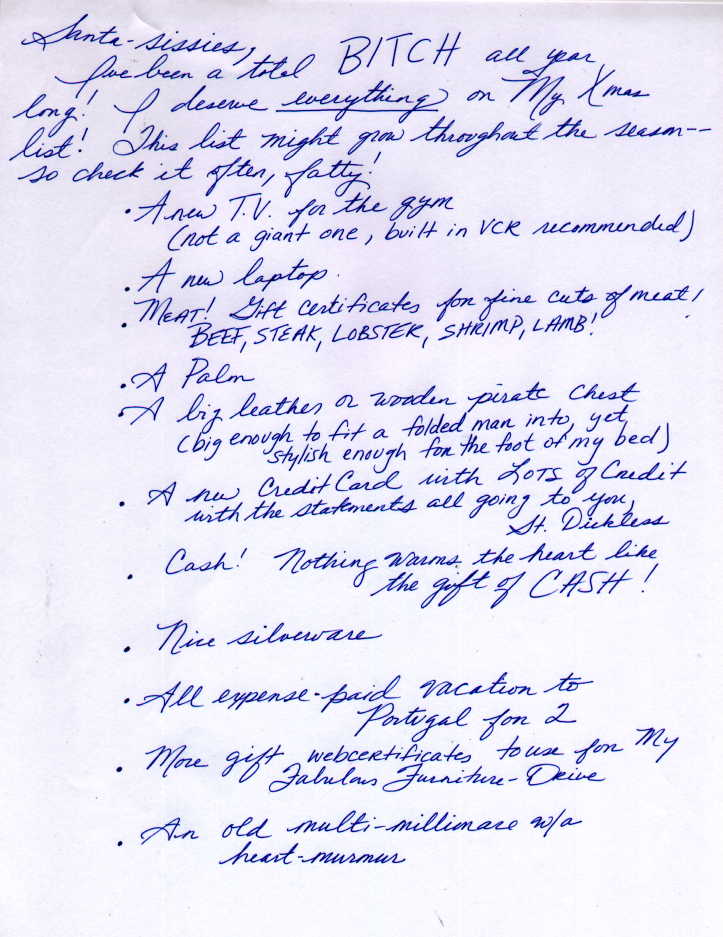 Santa-sissies,
I've been a total BITCH all year
long! I deserve everything on My Xmas
list! This list might grow throughout the season--
so check it often, fatty!
• A new T.V. for the gym
(not a giant one, built in VCR recommended)
• A new laptop.
• MEAT! Gift certificates for fine cuts of meat!
BEEF, STEAK, LOBSTER, SHRIMP, LAMB!
• A Palm
• A big leather or wooden pirate chest
(big enough to fit a folded man into, yet
stylish enough for the foot of my bed)
• A new Credit Card with LOTS of Credit
with the statements all going to you,
St. Dickless
• Cash! Nothing warms the heart like
the gift of CASH!
• Nice silverware
• All expense-paid vacation to
Portugal for 2
• More gift webcertificates to use for My
Fabulous Furniture-Drive
• An old multi-millionare w/a
heart-murmur